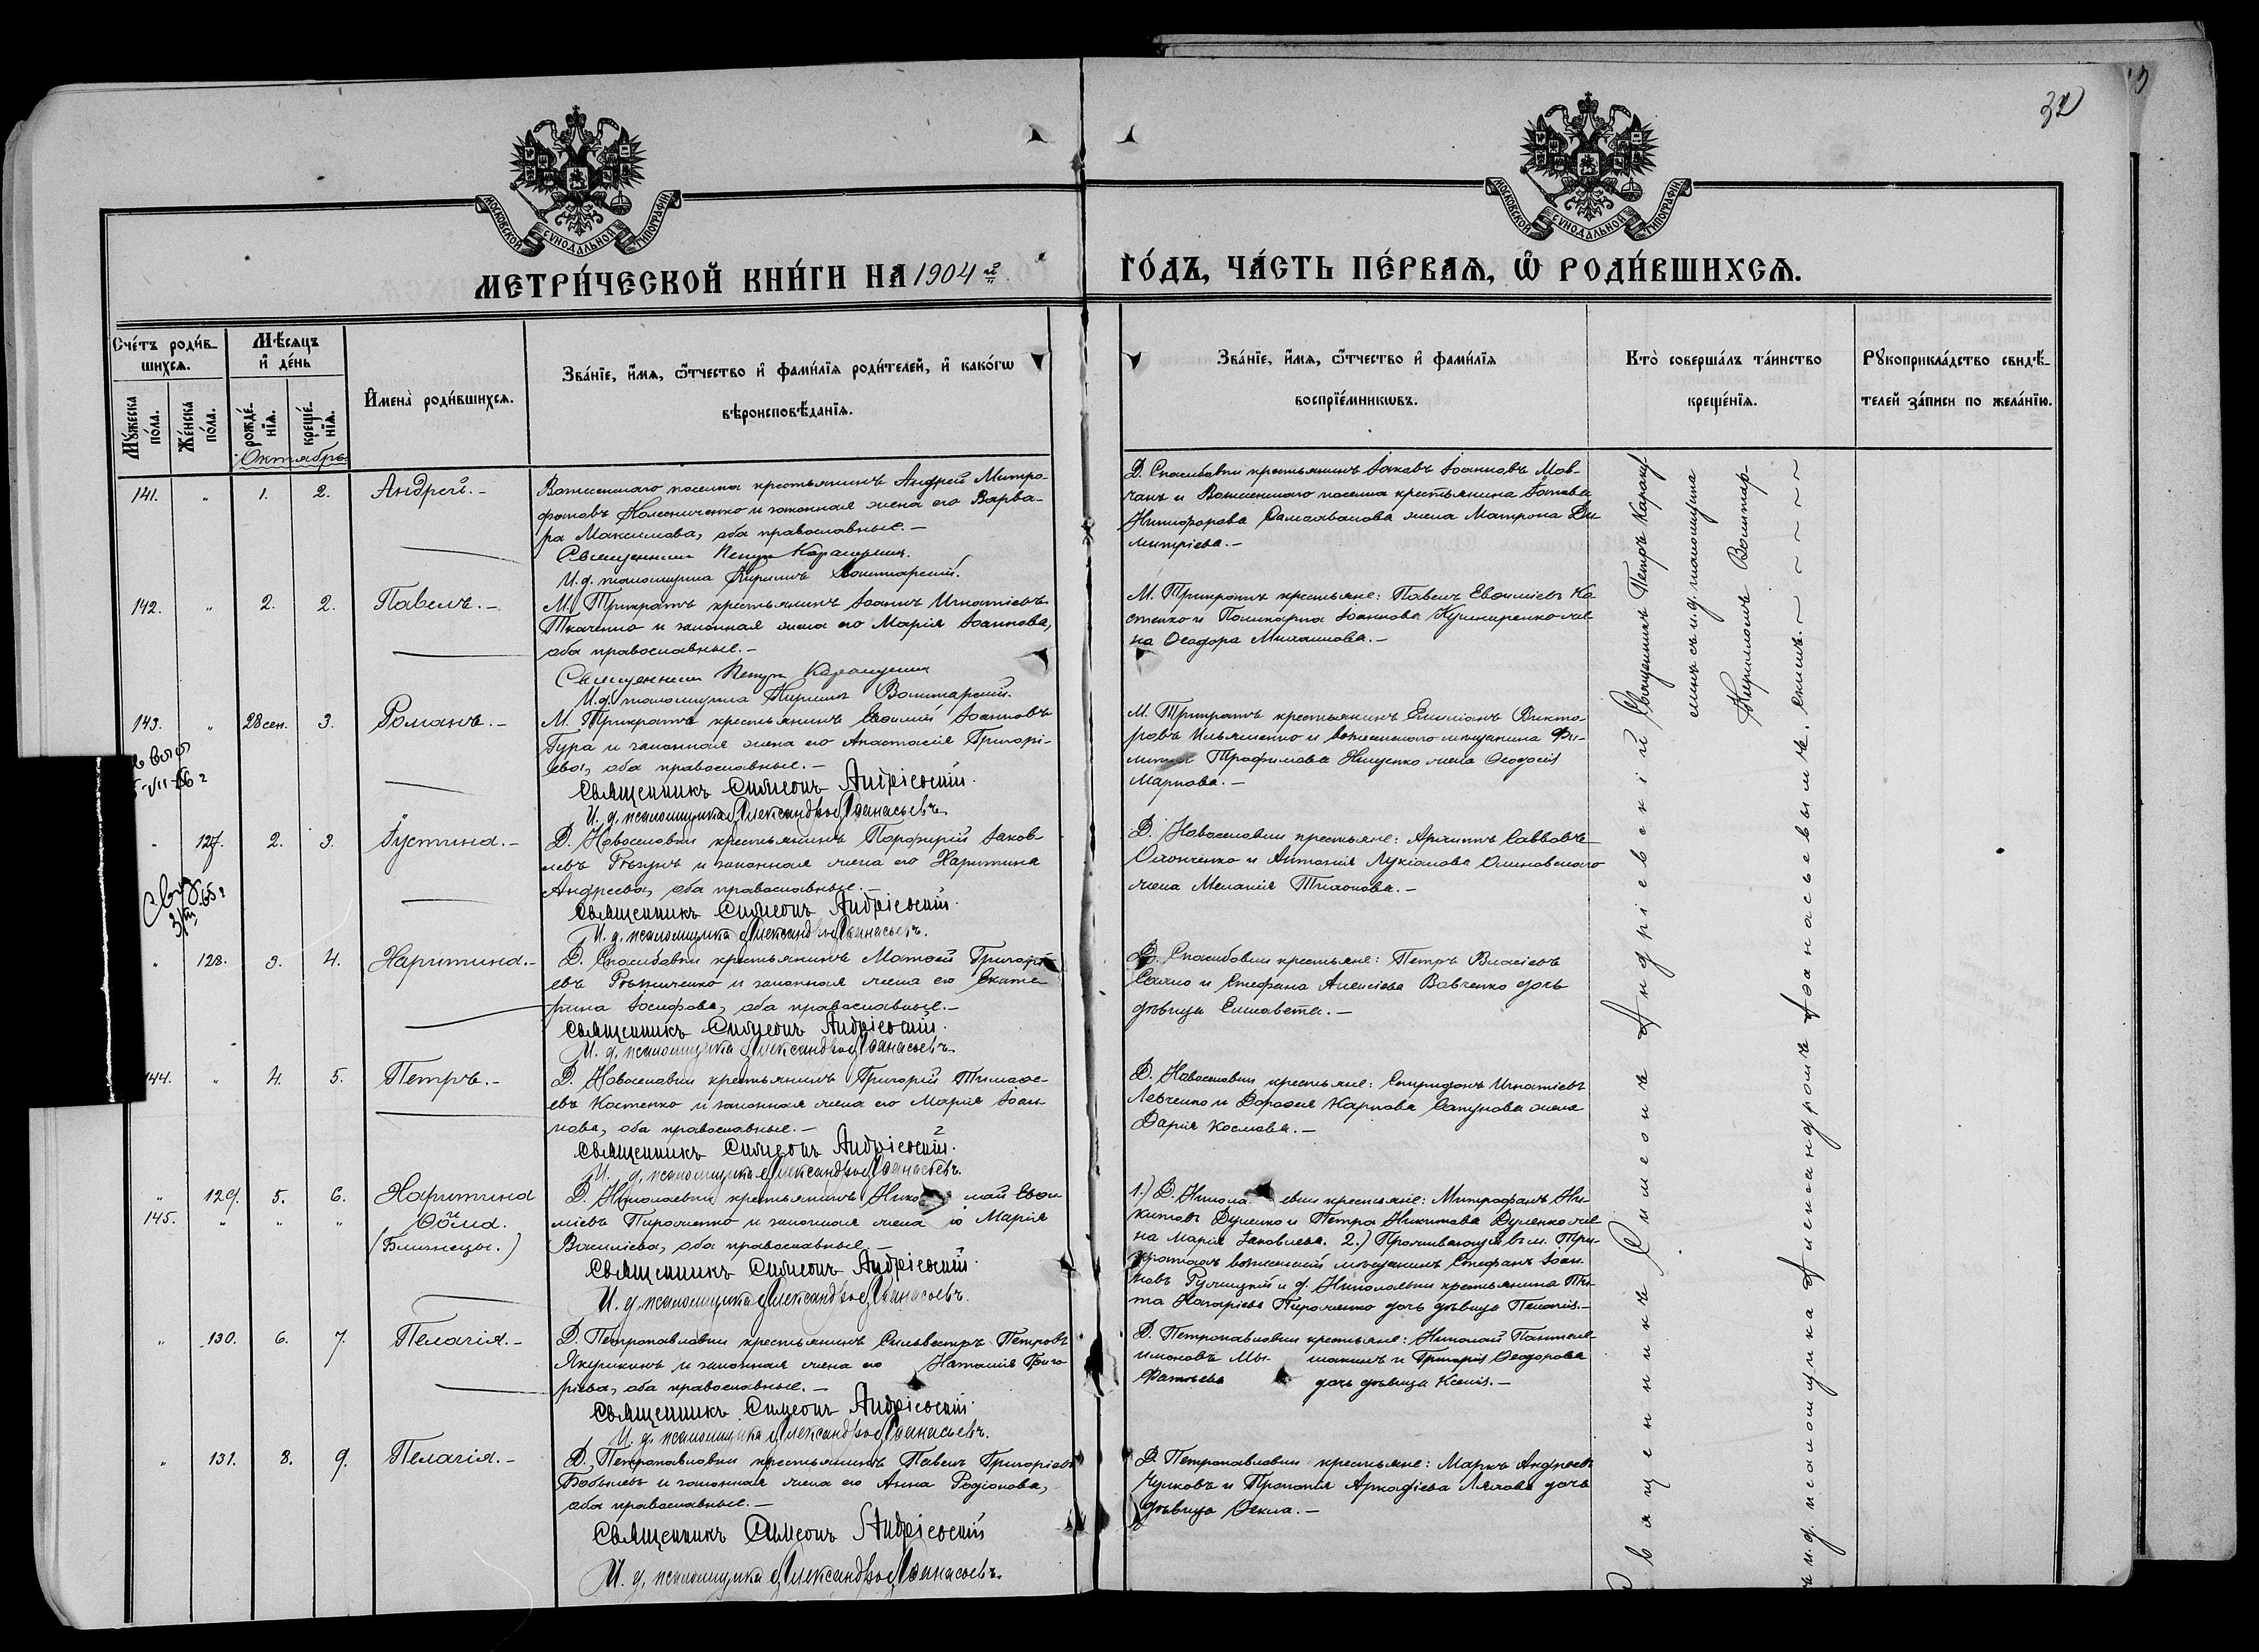 32
МОСКОВСКОЙ СѴНОДАЛЬНОЙ ТИПОГРАФІИ
МОСКОВСКОЙ СѴНОДАЛЬНОЙ ТИПОГРАФІИ
МЕТРИ́ЧЕСКОЙ КНИ́ГИ НА 1904 й
ГО́ДЪ, ЧА́СТЬ ПЕ́РВАЯ, Ѿ РОДИ́ВШИХСЯ.
Сче́тъ роди́в-
шихся.
Му́жеска по́ла.
Же́нска по́ла.
Мѣ́сяцъ
и де́нь
рожде́-
нїя.
креще́-
нїя.
Имена̀ роди́вшихся.
Зва́нїе, и́мя, ѻ́тчество и фами́лїя роди́телей, и како́гѡ
вѣроисповѣ́данїя.
Зва́нїе, и́мя, ѻ́тчество и фами́лїя
воспрїе́мникѡвъ.
Кто̀ соверша́лъ та́инство
креще́нїя.
Рꙋкоприкла́дство свидѣ́-
телей за́писи по жела́нїю.
Октябрь
141. " 1. 2. Андрей.-
Вознесенскаго поселка крестьянинъ Андрей Митро-
фановъ Колесниченко и законная жена его Варва-
ра Максимова, оба православные.-
Священникъ Петръ Карагульскій
И. д. псаломщика Кириллъ Волынтарскій.
Д. Спасибовки крестьянинъ Іаковъ Іоанновъ Мов-
чанъ и Вознесенскаго поселка крестьянина Іакова
Никифорова жена Матрона Ди-
митріева.-
142. " 2. 2. Павелъ.-
М. Трикратъ крестьянинъ Іоаннъ Игнатіевъ
Ткаченко и законная жена его Марія Іоаннова,
оба православные.-
Священникъ Петръ
И. д. псаломщика Кириллъ
М. Трикратъ крестьяне: Павелъ Евѳиміевъ Ко-
стенко и Поликарпа Іоаннова Кушниренко же-
на Ѳеодора Михаилова.-
143. " 28 сен. 3. Романъ.-
М. Трикратъ крестьянинъ Евѳимій Іоанновъ
Гура и законная жена его Анастасія Григорі-
ева, оба православные.-
Священникъ Симеонъ Андріевскій.
И. д. псаломщика Александръ Аѳанасьевъ.
М. Трикратъ крестьянинъ Емиліанъ Викто-
ровъ Ильяшенко и вознесенскаго мѣщанина Фи-
липпа Трофимова Нищенко жена Ѳеодосія
Маркова.-
" 127. 2. 3. Іустина.-
Д. Новоселовки крестьянинъ Порфирій Іаков-
левъ и законная жена его Харитина
Андреева, оба православные.-
Священникъ Симеонъ Андріевскій.
И. д. псаломщика Александръ Аѳанасьевъ.
Д. Новоселовки крестьяне: Архиппъ Савовъ
и Антонія Лукіанова Олиновскаго
жена Меланія Тихонова.-
" 128. 3. 4. Харитина.-
Д. Спасибовки крестьянинъ Матѳей Григорі-
евъ и законная жена его Екате-
рина Іосифова, оба православные.-
Священникъ Симеонъ Андріевскій.
И. д. псаломщика Александръ Аѳанасьевъ.
Д. Спасибовки крестьяне: Петръ Власіевъ
и Стефана Алексіева Вовченко дочь
дѣвица Елисавета.-
144. " 4. 5. Петръ.-
Д. Новоселовки крестьянинъ Григорій Тимоѳе-
евъ Костенко и законная жена его Марія Іоан-
нова, оба православные.-
Священникъ Симеонъ Андріевскій.
И. д. псаломщика Александръ Аѳанасьевъ.
Д. Новоселовки крестьяне: Спиридонъ Игнатіевъ
Левченко и Дороѳея Карпова Сапунова жена
Дарія Космова.-
" 129. 5. 6. Харитина
145. " " " и Ѳома.
(Близнецы.)
Д. Николаевки крестьянинъ Николай Евѳи-
міевъ Пироженко и законная жена его Марія
Василіева, оба православные.-
Священникъ Симеонъ Андріевскій.
И. д. псаломщика Александръ Аѳанасьевъ.
1.) Д. Николаевки крестьяне: Митрофанъ Ни-
китовъ Дуленко и Петра Никитова Дуленко же-
на Марія Іаковлева. 2.) Проживающій въ м. Три-
кратахъ вознесенскій мѣщанинъ Стефанъ Іоан-
новъ и д. Николаевки крестьянина Ти-
та Пироженко дочь дѣвица Пелагія.-
" 130. 6. 7. Пелагія.-
Д. Петропавловки крестьянинъ Сильвестръ Петровъ
Якушкинъ и законная жена его Наталія Григо-
ріева, оба православные.-
Священникъ Симеонъ Андріевскій.
И. д. псаломщика Александръ Аѳанасьевъ.
Д. Петропавловки крестьяне: Николай Пантеле-
имоновъ и Григорія Ѳеодорова
дочь дѣвица Ксенія.-
" 131. 8. 9. Пелагія.-
Д. Петропавловки крестьянинъ Павелъ Григоріевъ
Бобылевъ и законная жена его Анна Родіонова,
оба православные.-
Священникъ Симеонъ Андріевскій
И. д. псаломщика Александръ Аѳанасьевъ.
Д. Петропавловки крестьяне: Маркъ Андреевъ
Чулковъ и Прокопія Аркадіева Лялова дочь
дѣвица Ѳекла.-
Священникъ Петръ Карагуль-
скій съ и. д. псаломщика
Кирилломъ Волынтар-
скимъ.
Священникъ Симеонъ Андріевскій
съ и. д. псаломщика Александромъ Аѳанасьевымъ.